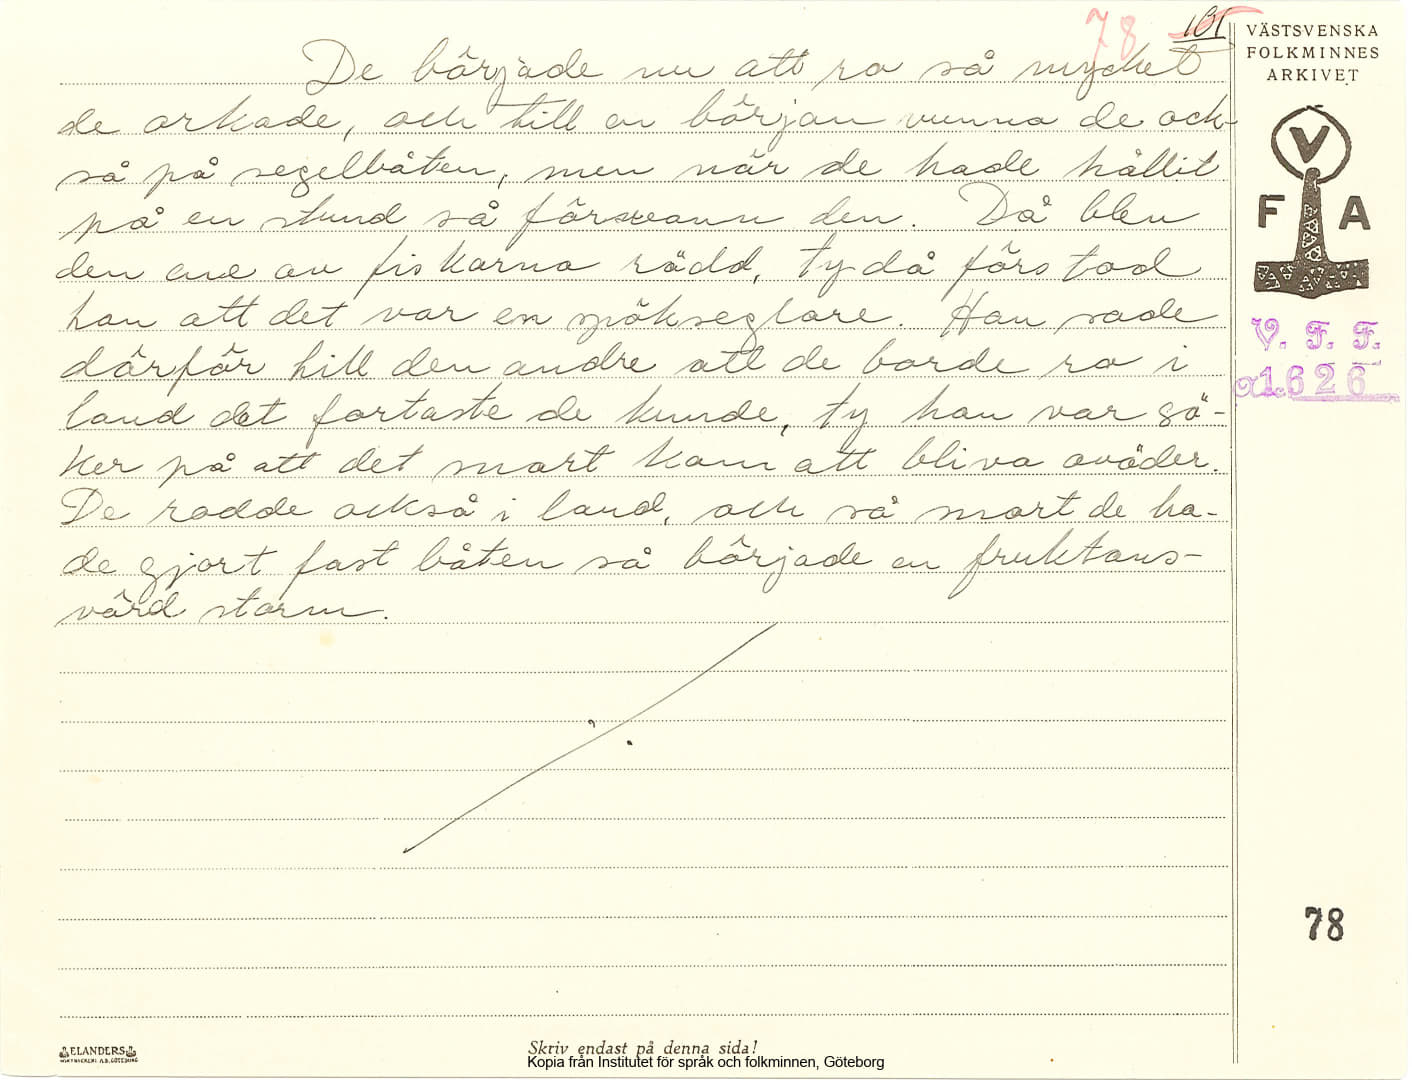 78 101
VÄSTSVENSKA
FOLKMINNES
ARKIVET
De började nu att ro så mycket
de orkade, och till en början vunno de ock-
så på segelbåten, men när de hade hållit
på en stund så försvann den. Då blev
den ene av fiskarna rädd, ty då förstod
han att det var en spökseglare. Han sade
därför till den andre att de borde ro i
land det fortaste de kunde, ty han var sä-
ker på att det snart kom att bliva oväder.
De rodde också i land, och så snart de ha-
de gjort fast båten så började en fruktans-
värd storm.
V
F A
V. F. F.
1626
78
ELANDERS
Skriv endast på denna sida!
Kopia från Institutet för språk och folkminnen, Göteborg